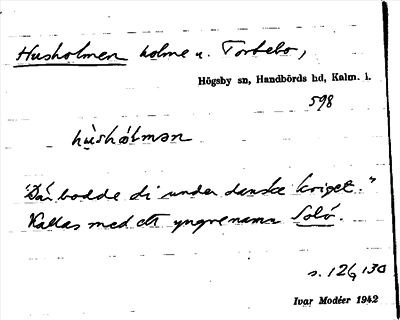 Husholmen holme u. Torbebo,
Högsby sn, Handbörds hd, Kalm. l.
598
hùshólmən
"Där bodde di under danske kriget."
Kallas med ett yngre namn Solö.
s. 126, 130
Ivar Modéer 1942